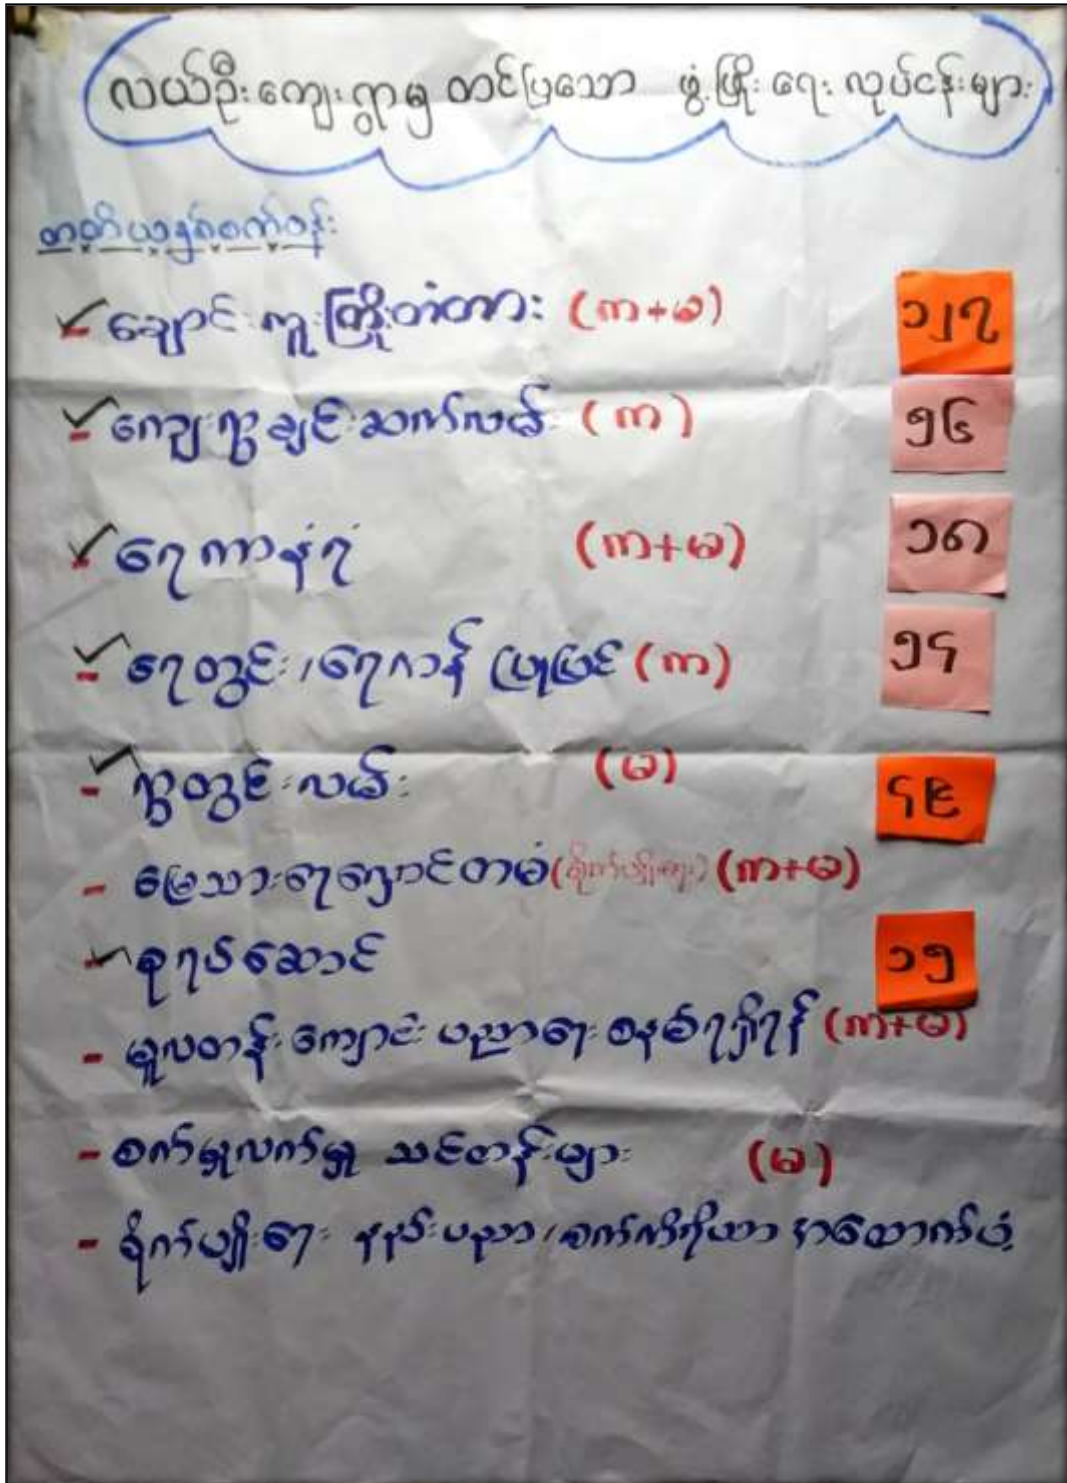 လယ်ဦးကျေးရွာမှ တင်ပြသော ဖွံ့ဖြိုးရေး လုပ်ငန်းများ
တတိယနှစ်စက်ဝန်း
- ချောင်းကူးကြိုးတံတား (က+မ) ၁၂၇
- ကျေးရွာချင်းဆက်လမ်း (က) ၅၆
- ရေကာနံရံ (က+မ) ၁၈
- ရေတွင်း/ရေကန် ပြုပြင် (က) ၅၄
- ရွာတွင်းလမ်း (မ) ၄၉
- မြေသားရေကျောင်တမံ (စိုက်ပျိုးရေး) (က+မ)
- စုရပ်ဆောင် ၁၅
- မူလတန်းကျောင်း ပညာရေးစနစ်ရရှိရန် (က+မ)
- စက်မှုလက်မှု သင်တန်းများ (မ)
- စိုက်ပျိုးရေး နည်းပညာ/စက်ကိရိယာ အထောက်ပံ့